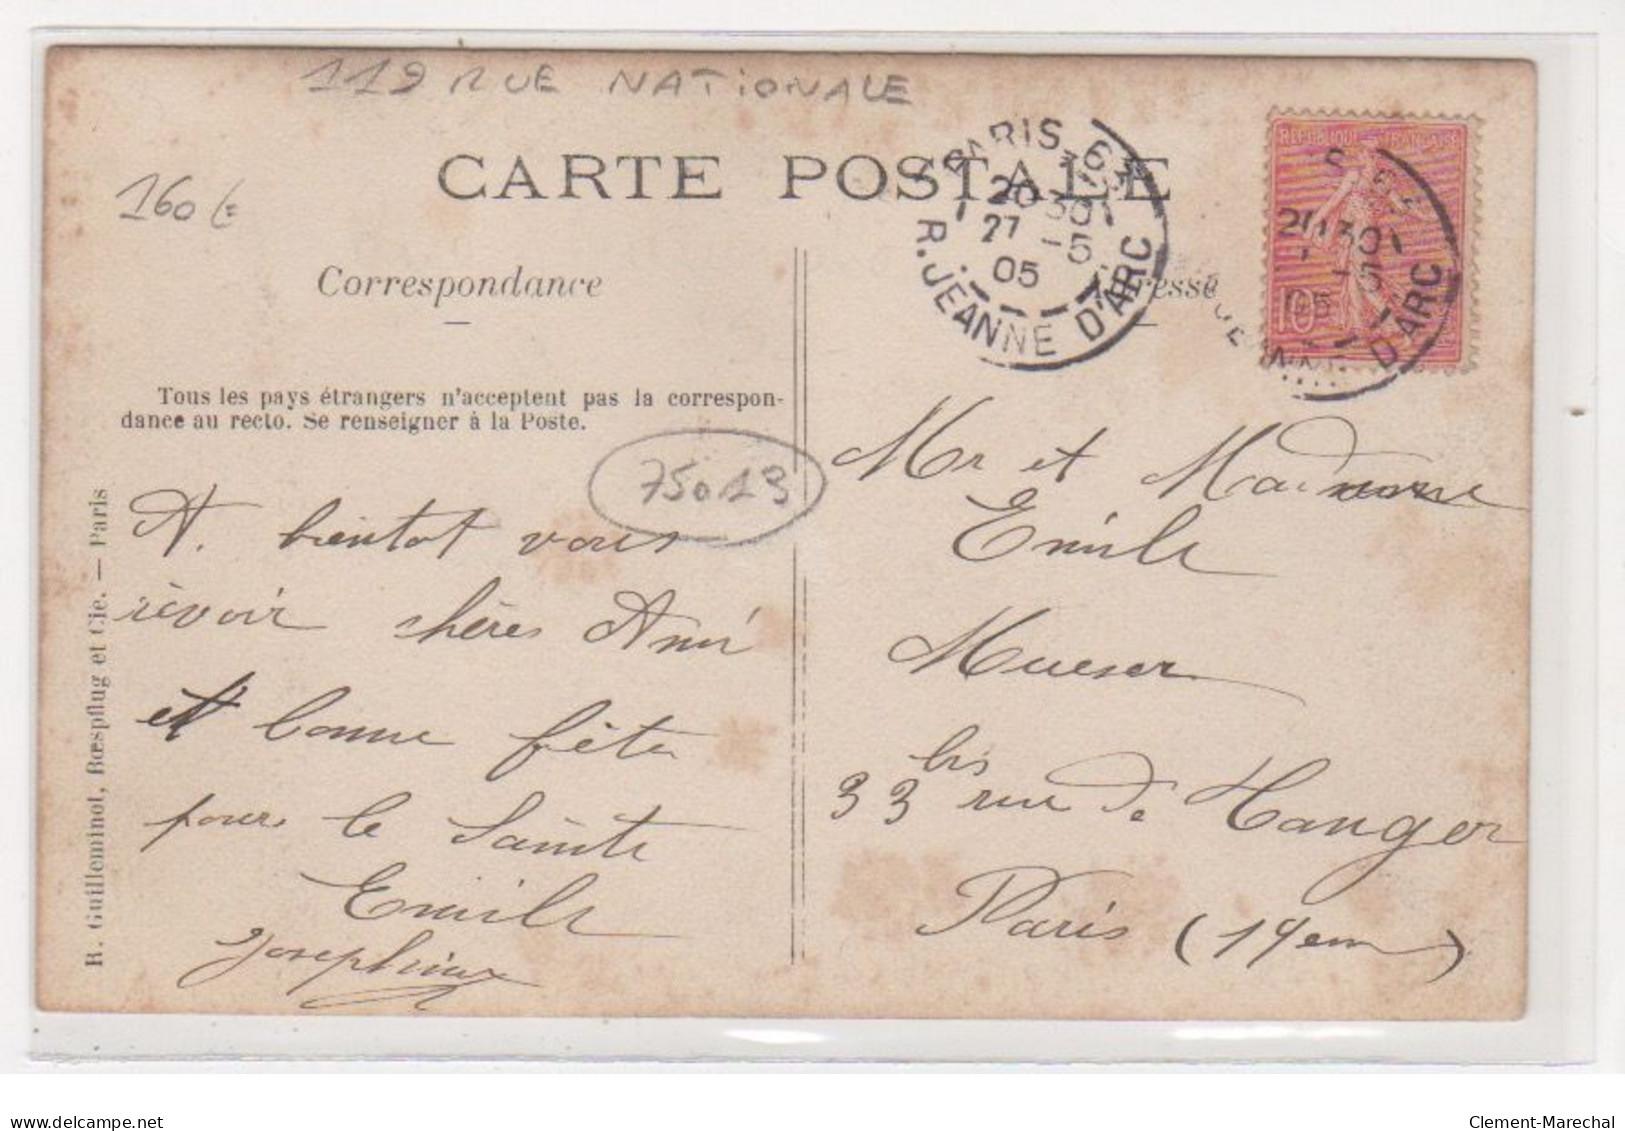 119 RUE NATIONALE
CARTE POSTALE
160 €
PARIS 63
20 30
27 -5
05
R. JEANNE D'ARC
REPUBLIQUE FRANÇAISE
10
30
05
JEANNE D'ARC
Correspondance
Adresse
Tous les pays étrangers n'acceptent pas la correspon-
dance au recto. Se renseigner à la Poste.
75013
A. bientot vous
revoir chères Ami
et bonne fête
pour le Sainte
Emile
Josephine
Mr et Madame
Emile
Mueser
33 bis rue de Tanger
Paris (19em)
R. Guilleminot, Bœspflug et Cie. — Paris
delcampe.net
Clement-Marechal